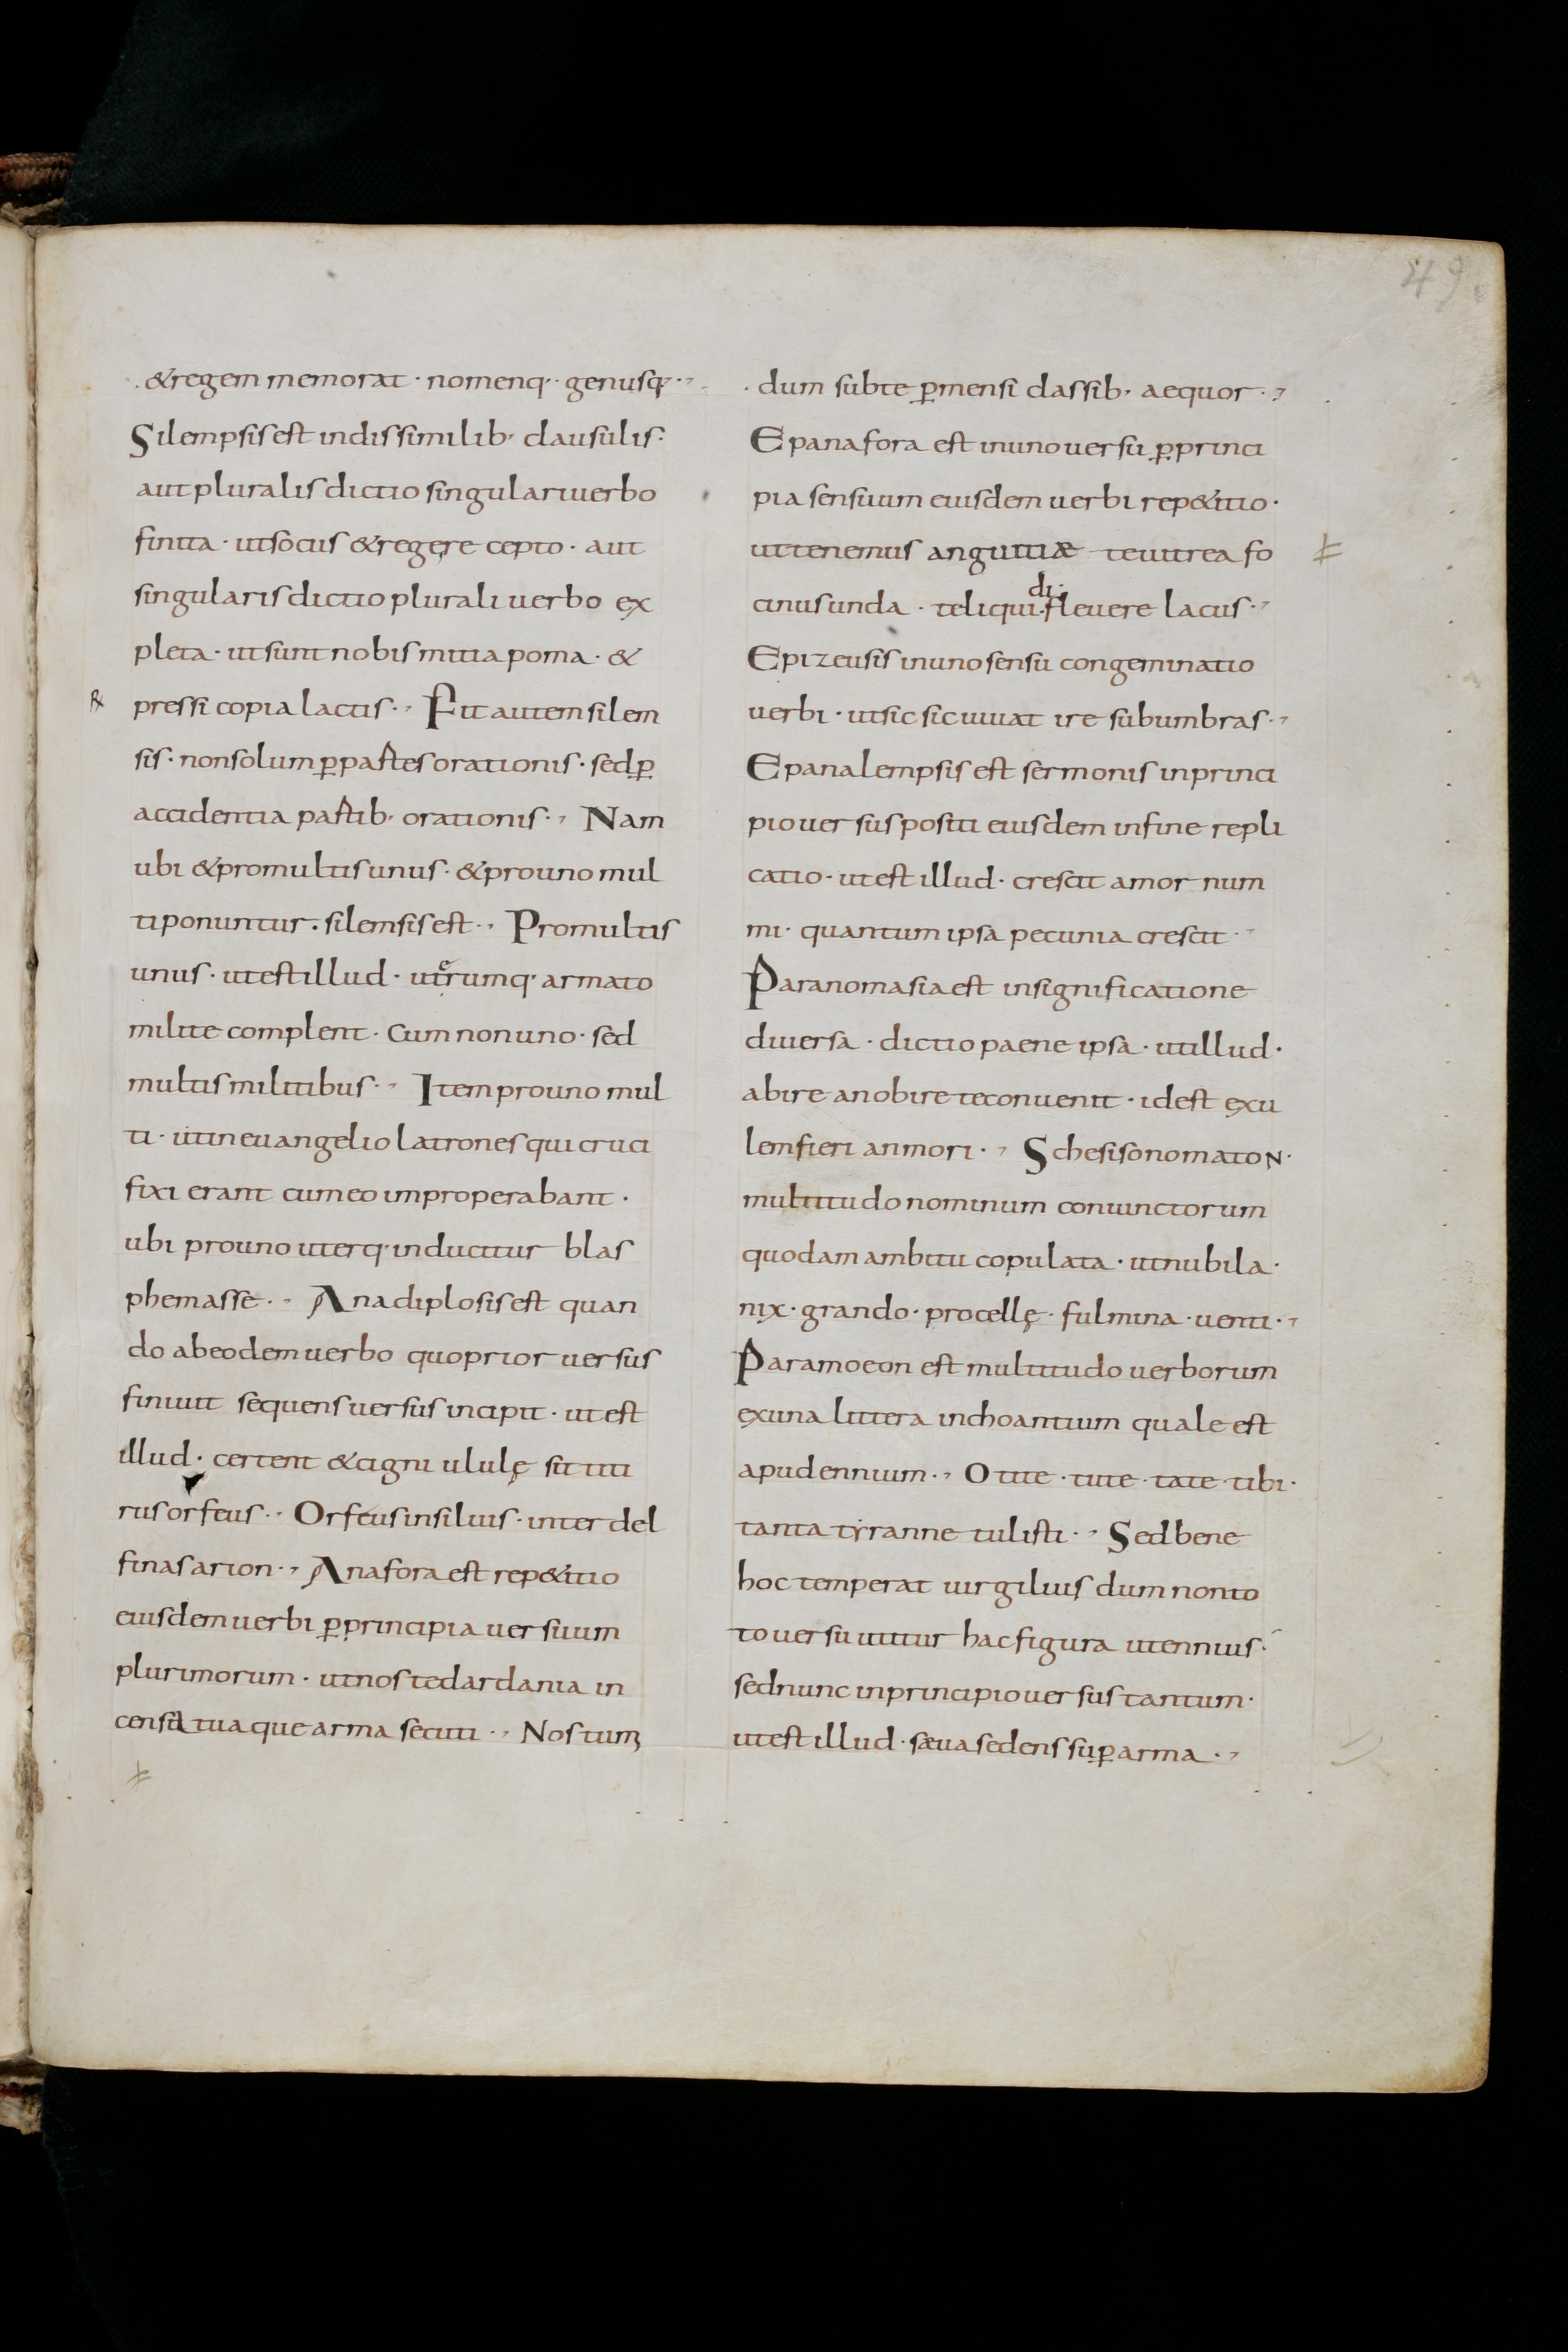 49
&regem memorat · nomenq· · genusq· ·,
Silempsis est indissimilib· clausulis ·
aut pluralis dictio singulari uerbo
finita · ut socius & regere cepto · aut
singularis dictio plurali uerbo ex
pleta · ut sunt nobis mitia poma · &
pressi copia lactis ·, Fit autem silem
sis · non solum ꝑ partes orationis · sed ꝑ
accidentia partib· orationis ·, Nam
ubi & pro multis unus · & pro uno mul
ti ponuntur · silemsis est ·, Pro multis
unus · ut est illud · uterumq· armato
milite complent · Cum non uno · sed
multis militibus ·, Item pro uno mul
ti · ut in euangelio latrones qui cruci
fixi erant cum eo improperabant ·
ubi pro uno uterq· inducitur blas
phemasse ·, Anadiplosis est quan
do ab eodem uerbo quo prior uersus
finiuit sequens uersus incipit · ut est
illud · certent & cigni ululę sit titi
rus orfeus ·, Orfeus in siluis · inter del
finas arion ·, Anafora est rep&itio
eiusdem uerbi ꝑ principia uersuum
plurimorum · ut nos te dardania in
censa tuaque arma secuti ·, Nos tum
dum sub te ꝑmensi classib· aequor ·,
Epanafora est in uno uersu ꝑ princi
pia sensuum eiusdem uerbi rep&itio ·
ut te nemus angutiæ te uitrea fo
cinus unda · te liqui · fleuere lacus ·,
di
Epizeusis in uno sensu congeminatio
uerbi · ut sic sic iuuat ire sub umbras ·,
Epanalempsis est sermonis in princi
pio uersus positi eiusdem in fine repli
catio · ut est illud · crescit amor num
mi · quantum ipsa pecunia crescit ·,
Paranomasia est in significatione
diuersa · dictio paene ipsa · ut illud ·
abire an obire te conuenit · id est exu
lem fieri an mori ·, Schesis onomatoN ·
multitudo nominum coniunctorum
quodam ambitu copulata · ut nubila ·
nix · grando · procellę · fulmina · uenti ·,
Paramoeon est multitudo uerborum
ex una littera inchoantium quale est
apud ennium ·, O tite · tute · tate · tibi ·
tanta tyranne tulisti ·, Sed bene
hoc temperat uirgilius dum non to
to uersu utitur hac figura ut ennius ·
sed nunc in principio uersus tantum ·
ut est illud · sæua sedens suꝑ arma ·,